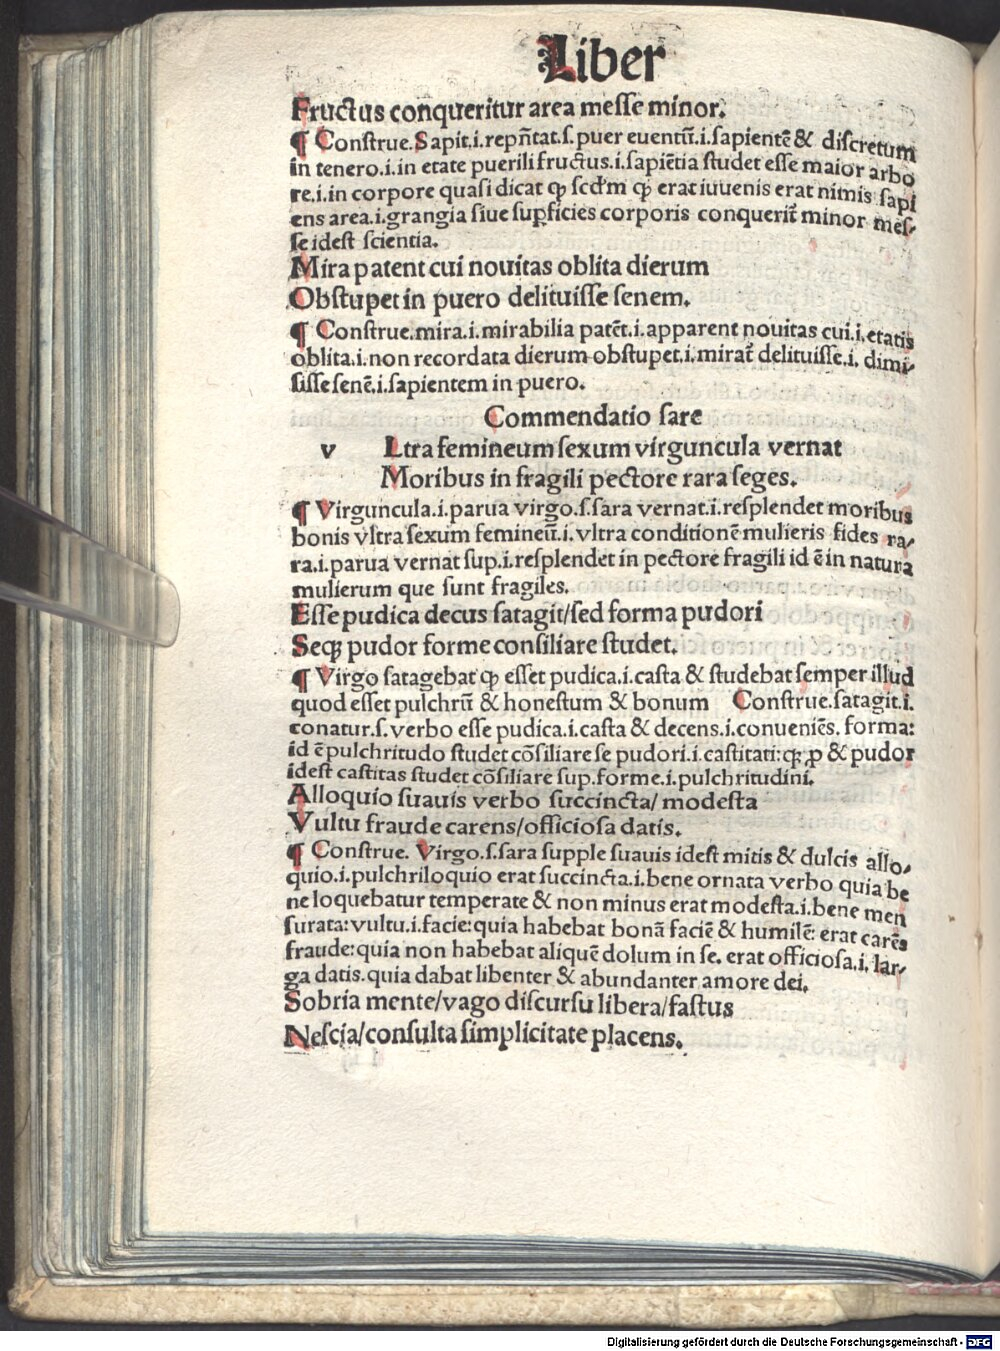 Liber
Fructus conqueritur area messe minor.
¶ Construe. Sapit.i.repñtat.s.puer euentũ.i.sapientẽ & discretum
in tenero.i.in etate puerili fructus.i.sapiẽtia studet esse maior arbo
re.i.in corpore quasi dicat qꝫ scd'm qꝫ erat iuuenis erat nimis sapi
ens area.i.grangia siue supficies corporis conquerit᷑ minor mes⸗
se idest scientia.
Mira patent cui nouitas oblita dierum
Obstupet in puero delituisse senem.
¶ Construe.mira.i.mirabilia patẽt.i.apparent nouitas cui.i.etatis
oblita.i.non recordata dierum obstupet.i.mirat᷑ delituisse.i. dimi⸗
sisse senẽ.i.sapientem in puero.
Commendatio sare
v Ltra femineum sexum virguncula vernat
Moribus in fragili pectore rara seges.
¶ Virguncula.i.parua virgo.s.sara vernat.i.resplendet moribus
bonis vltra sexum femineũ.i.vltra conditionẽ mulieris fides ra⸗
ra.i.parua vernat sup.i.resplendet in pectore fragili id ẽ in natura
mulierum que sunt fragiles.
Esse pudica decus satagit/sed forma pudori
Seqꝫ pudor forme consiliare studet.
¶ Virgo satagebat qꝫ esset pudica.i.casta & studebat semper illud
quod esset pulchrũ & honestum & bonum Construe.satagit.i.
conatur.s.verbo esse pudica.i.casta & decens.i.conueniẽs. forma:
id ẽ pulchritudo studet cõsiliare se pudori.i.castitati:qꝫ ꝓ & pudor
idest castitas studet cõsiliare sup.forme.i.pulchritudini.
Alloquio suauis verbo succincta/ modesta
Vultu fraude carens/officiosa datis.
¶ Construe. Virgo.s.sara supple suauis idest mitis & dulcis allo⸗
quio.i.pulchriloquio erat succincta.i.bene ornata verbo quia be
ne loquebatur temperate & non minus erat modesta.i.bene men
surata:vultu.i.facie:quia habebat bonã faciẽ & humilẽ: erat carẽs
fraude:quia non habebat aliquẽ dolum in se. erat officiosa.i. lar⸗
ga datis.quia dabat libenter & abundanter amore dei.
Sobria mente/vago discursu libera/fastus
Nescia/consulta simplicitate placens.
Digitalisierung gefördert durch die Deutsche Forschungsgemeinschaft - DFG